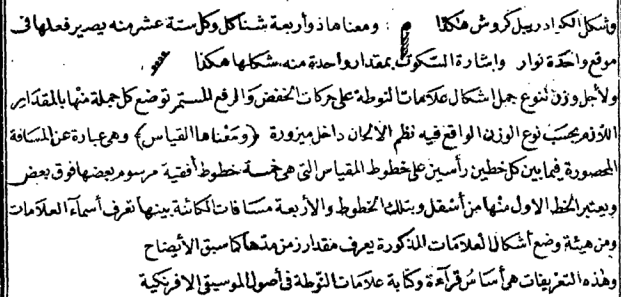 وشكل الكوادريبل كروش هكذا : ومعناها ذو أربعة شناكل وكل ستة عشر منه يصير فعلها في
موقع واحدة نوار وإشارة السكوت بمقدار واحدة منه شكلها هكذا
ولأجل وزن لنوع جمل اشكال علامات النوطة على حركات الخفض والرفع المستمر توضع كل جملة منها بالمقدار
اللازم بحسب نوع الوزن الواقع فيه نظم الالحان داخل ميزورة (ومعناها القياس) وهي عبارة عن المسافة
المحصورة فيما بين كل خطين رأسين على خطوط المقياس التي هي خمسة خطوط أفقية مرسوم بعضها فوق بعض
ويعتبر الخط الاول منها من أسفل وبتلك الخطوط والأربعة مسافات الكائنة بينها تعرف أسماء العلامات
ومن هيئة وضع أشكال العلامات المذكورة يعرف مقدار زمن مدها كما سبق الأيضاح
وهذه التعريفات هي أساس قرآءة وكتابة علامات النوطة في أصول الموسيقى الافرنكية